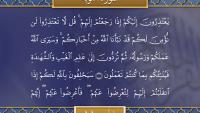 يَعْتَذِرُونَ إِلَيْكُمْ إِذَا رَجَعْتُمْ إِلَيْهِمْ ۚ قُل لَّا تَعْتَذِرُوا۟ لَن
نُّؤْمِنَ لَكُمْ قَدْ نَبَّأَنَا ٱللَّهُ مِنْ أَخْبَارِكُمْ ۚ وَسَيَرَى ٱللَّهُ
عَمَلَكُمْ وَرَسُولُهُۥ ثُمَّ تُرَدُّونَ إِلَىٰ عَٰلِمِ ٱلْغَيْبِ وَٱلشَّهَٰدَةِ
فَيُنَبِّئُكُم بِمَا كُنتُمْ تَعْمَلُونَ ۝ سَيَحْلِفُونَ بِٱللَّهِ لَكُمْ إِذَا
ٱنقَلَبْتُمْ إِلَيْهِمْ لِتُعْرِضُوا۟ عَنْهُمْ ۖ فَأَعْرِضُوا۟ عَنْهُمْ ۖ إِنَّهُمْ